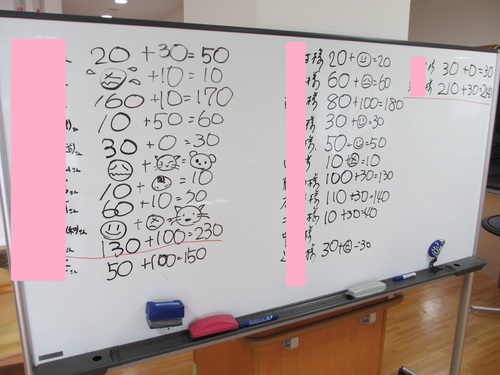 20 + 30 = 50
+ 10 = 10
160 + 10 = 170
10 + 50 = 60
30 + 0 = 30
+ =
10 + = 10
60 + 10 =
+ =
130 + 100 = 230
50 + 100 = 150
様 20 + = 20
様 60 + = 60
様 80 + 100 = 180
様 30 + = 30
様 50 + = 50
様 10 + = 10
様 100 + 30 = 130
様 110 + 30 = 140
様 10 + 30 = 40
様
様 30 + = 30
様 30 + 0 = 30
様 210 + 30 = 240